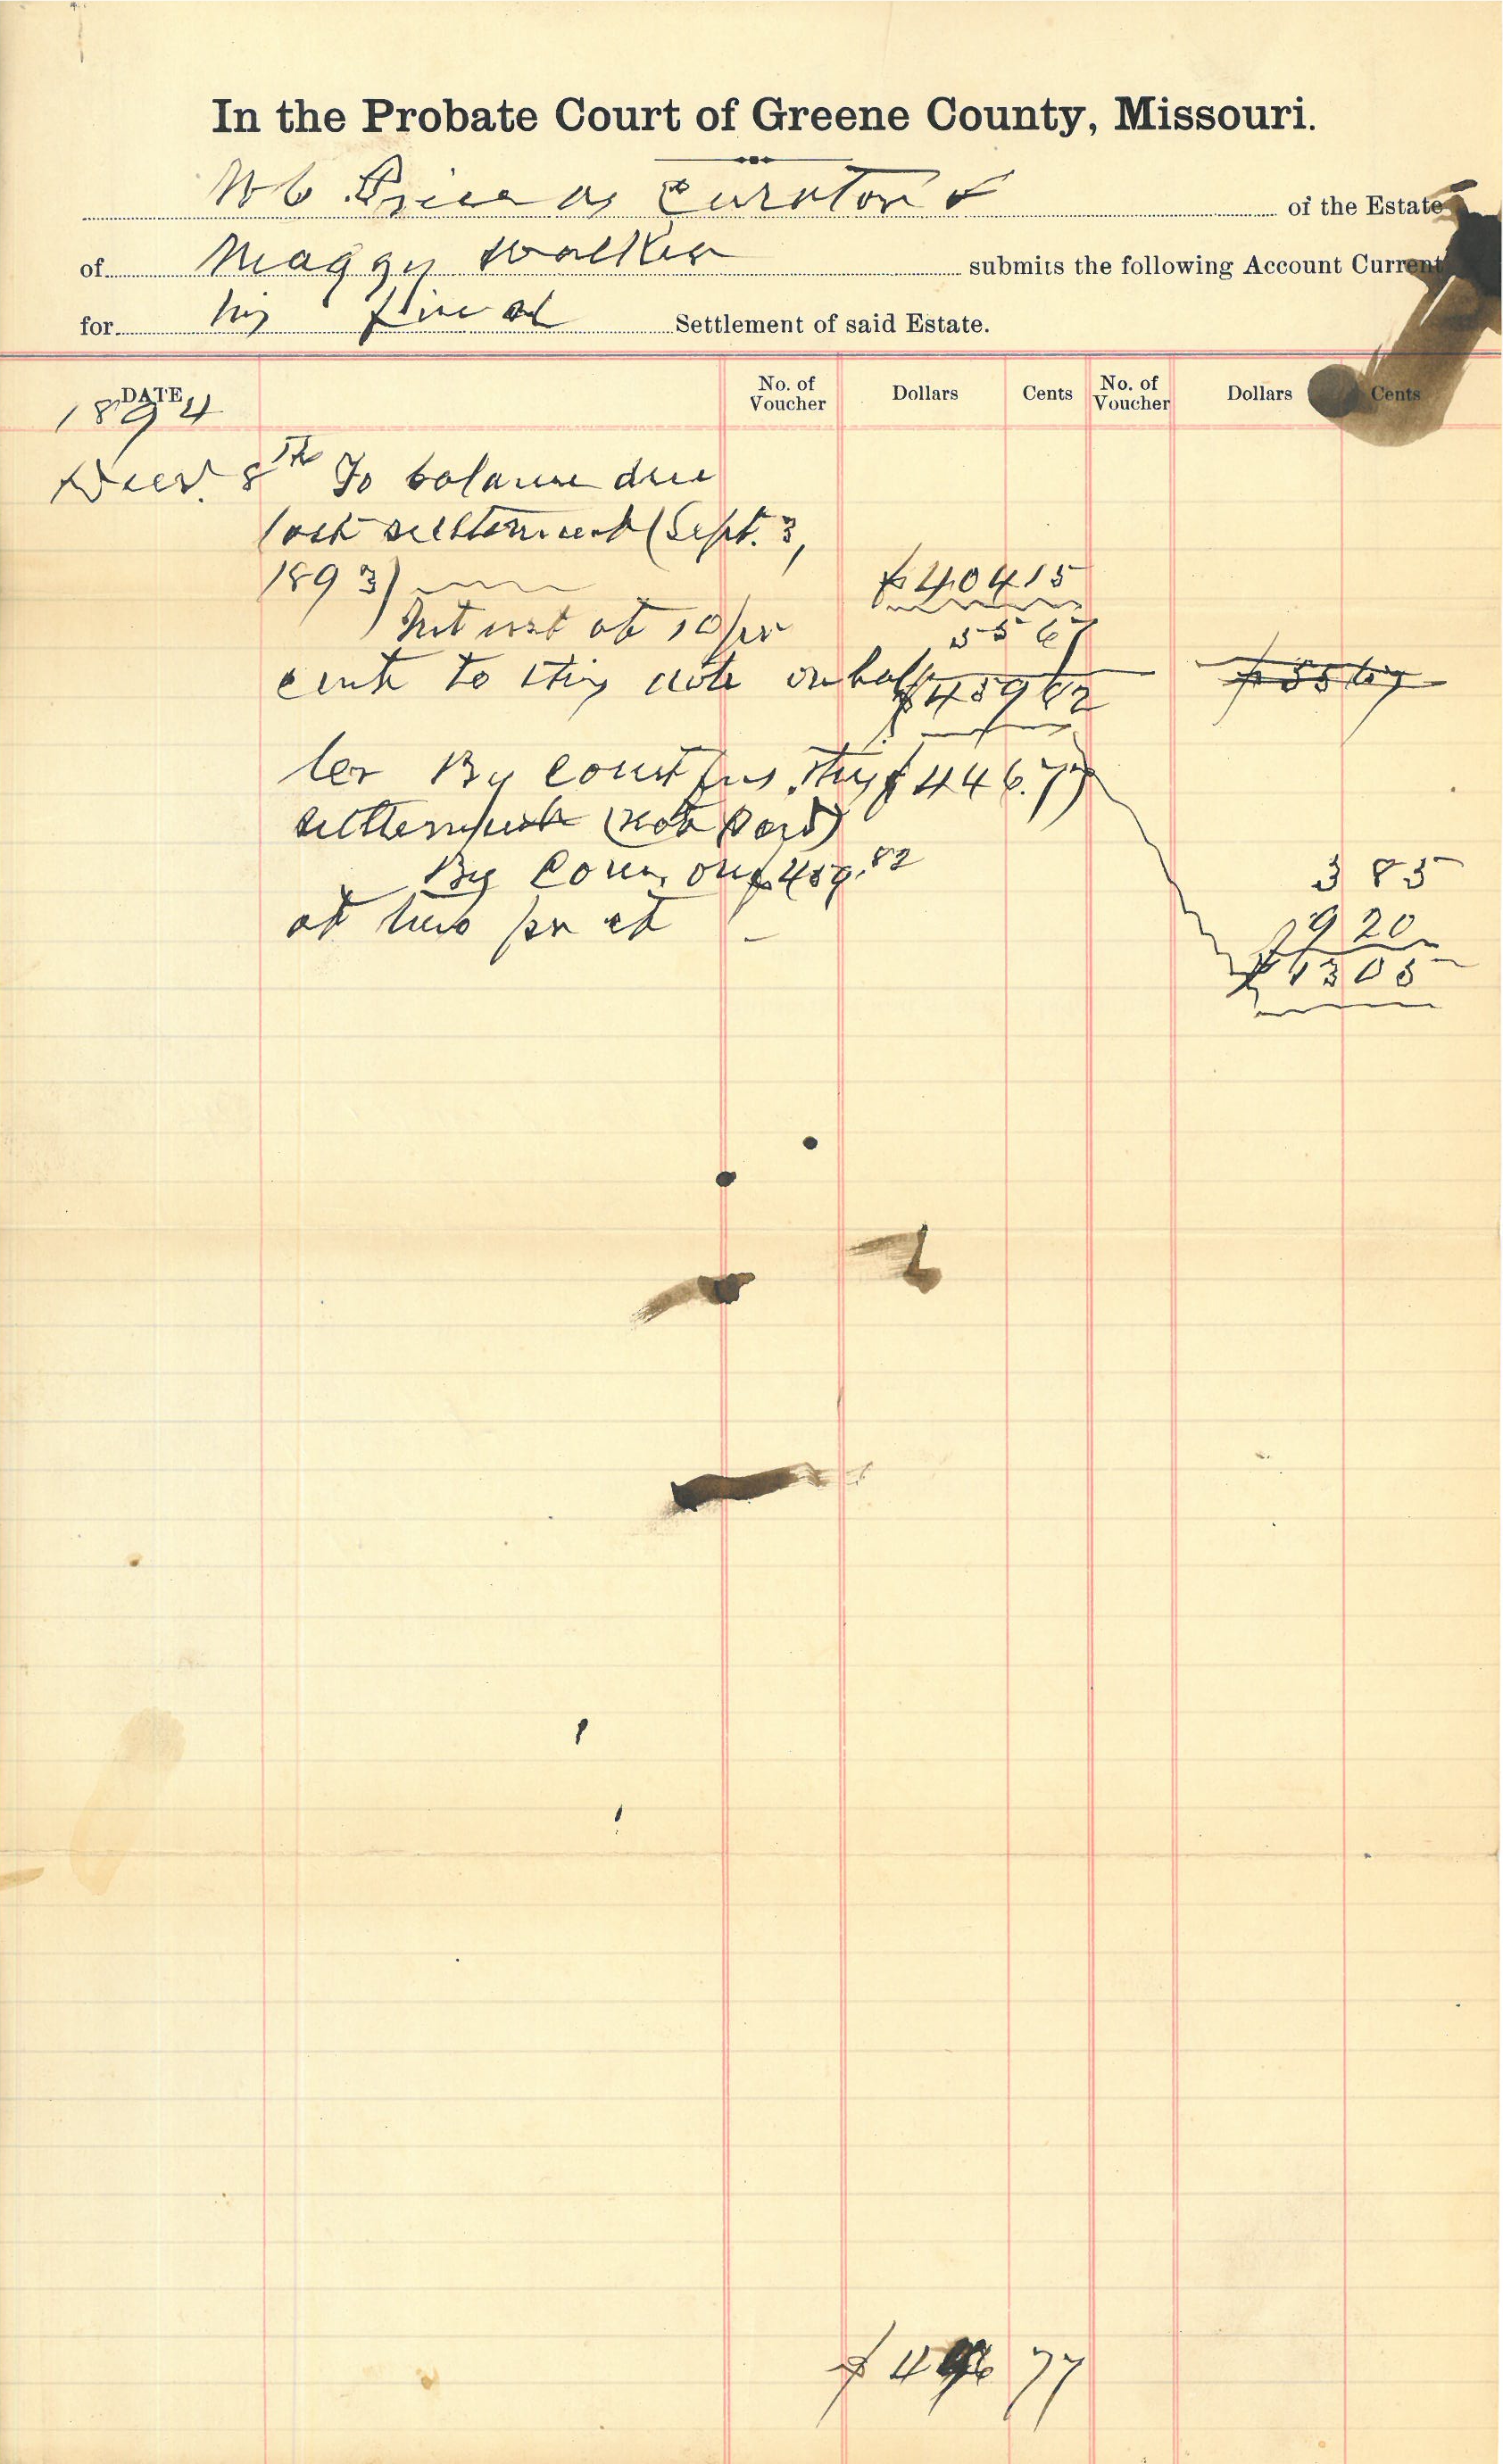 In the Probate Court of Greene County, Missouri.
W C Price as Curator of of the Estate
of Maggy Walker submits the following Account Current
for his final Settlement of said Estate.
DATE No. of Voucher Dollars Cents No. of Voucher Dollars Cents
1894
Decr. 8th To balance due
last settlement (Sept. 3,
1893) $404 15
Interest at 10 pr 55 67
cent to this date on bal $459 82 $55 67
By Court fees this $446.77
settlement (not paid) 3 85
By Com, on $459.82
at two pr ct 9 20
$13 05
$446 77